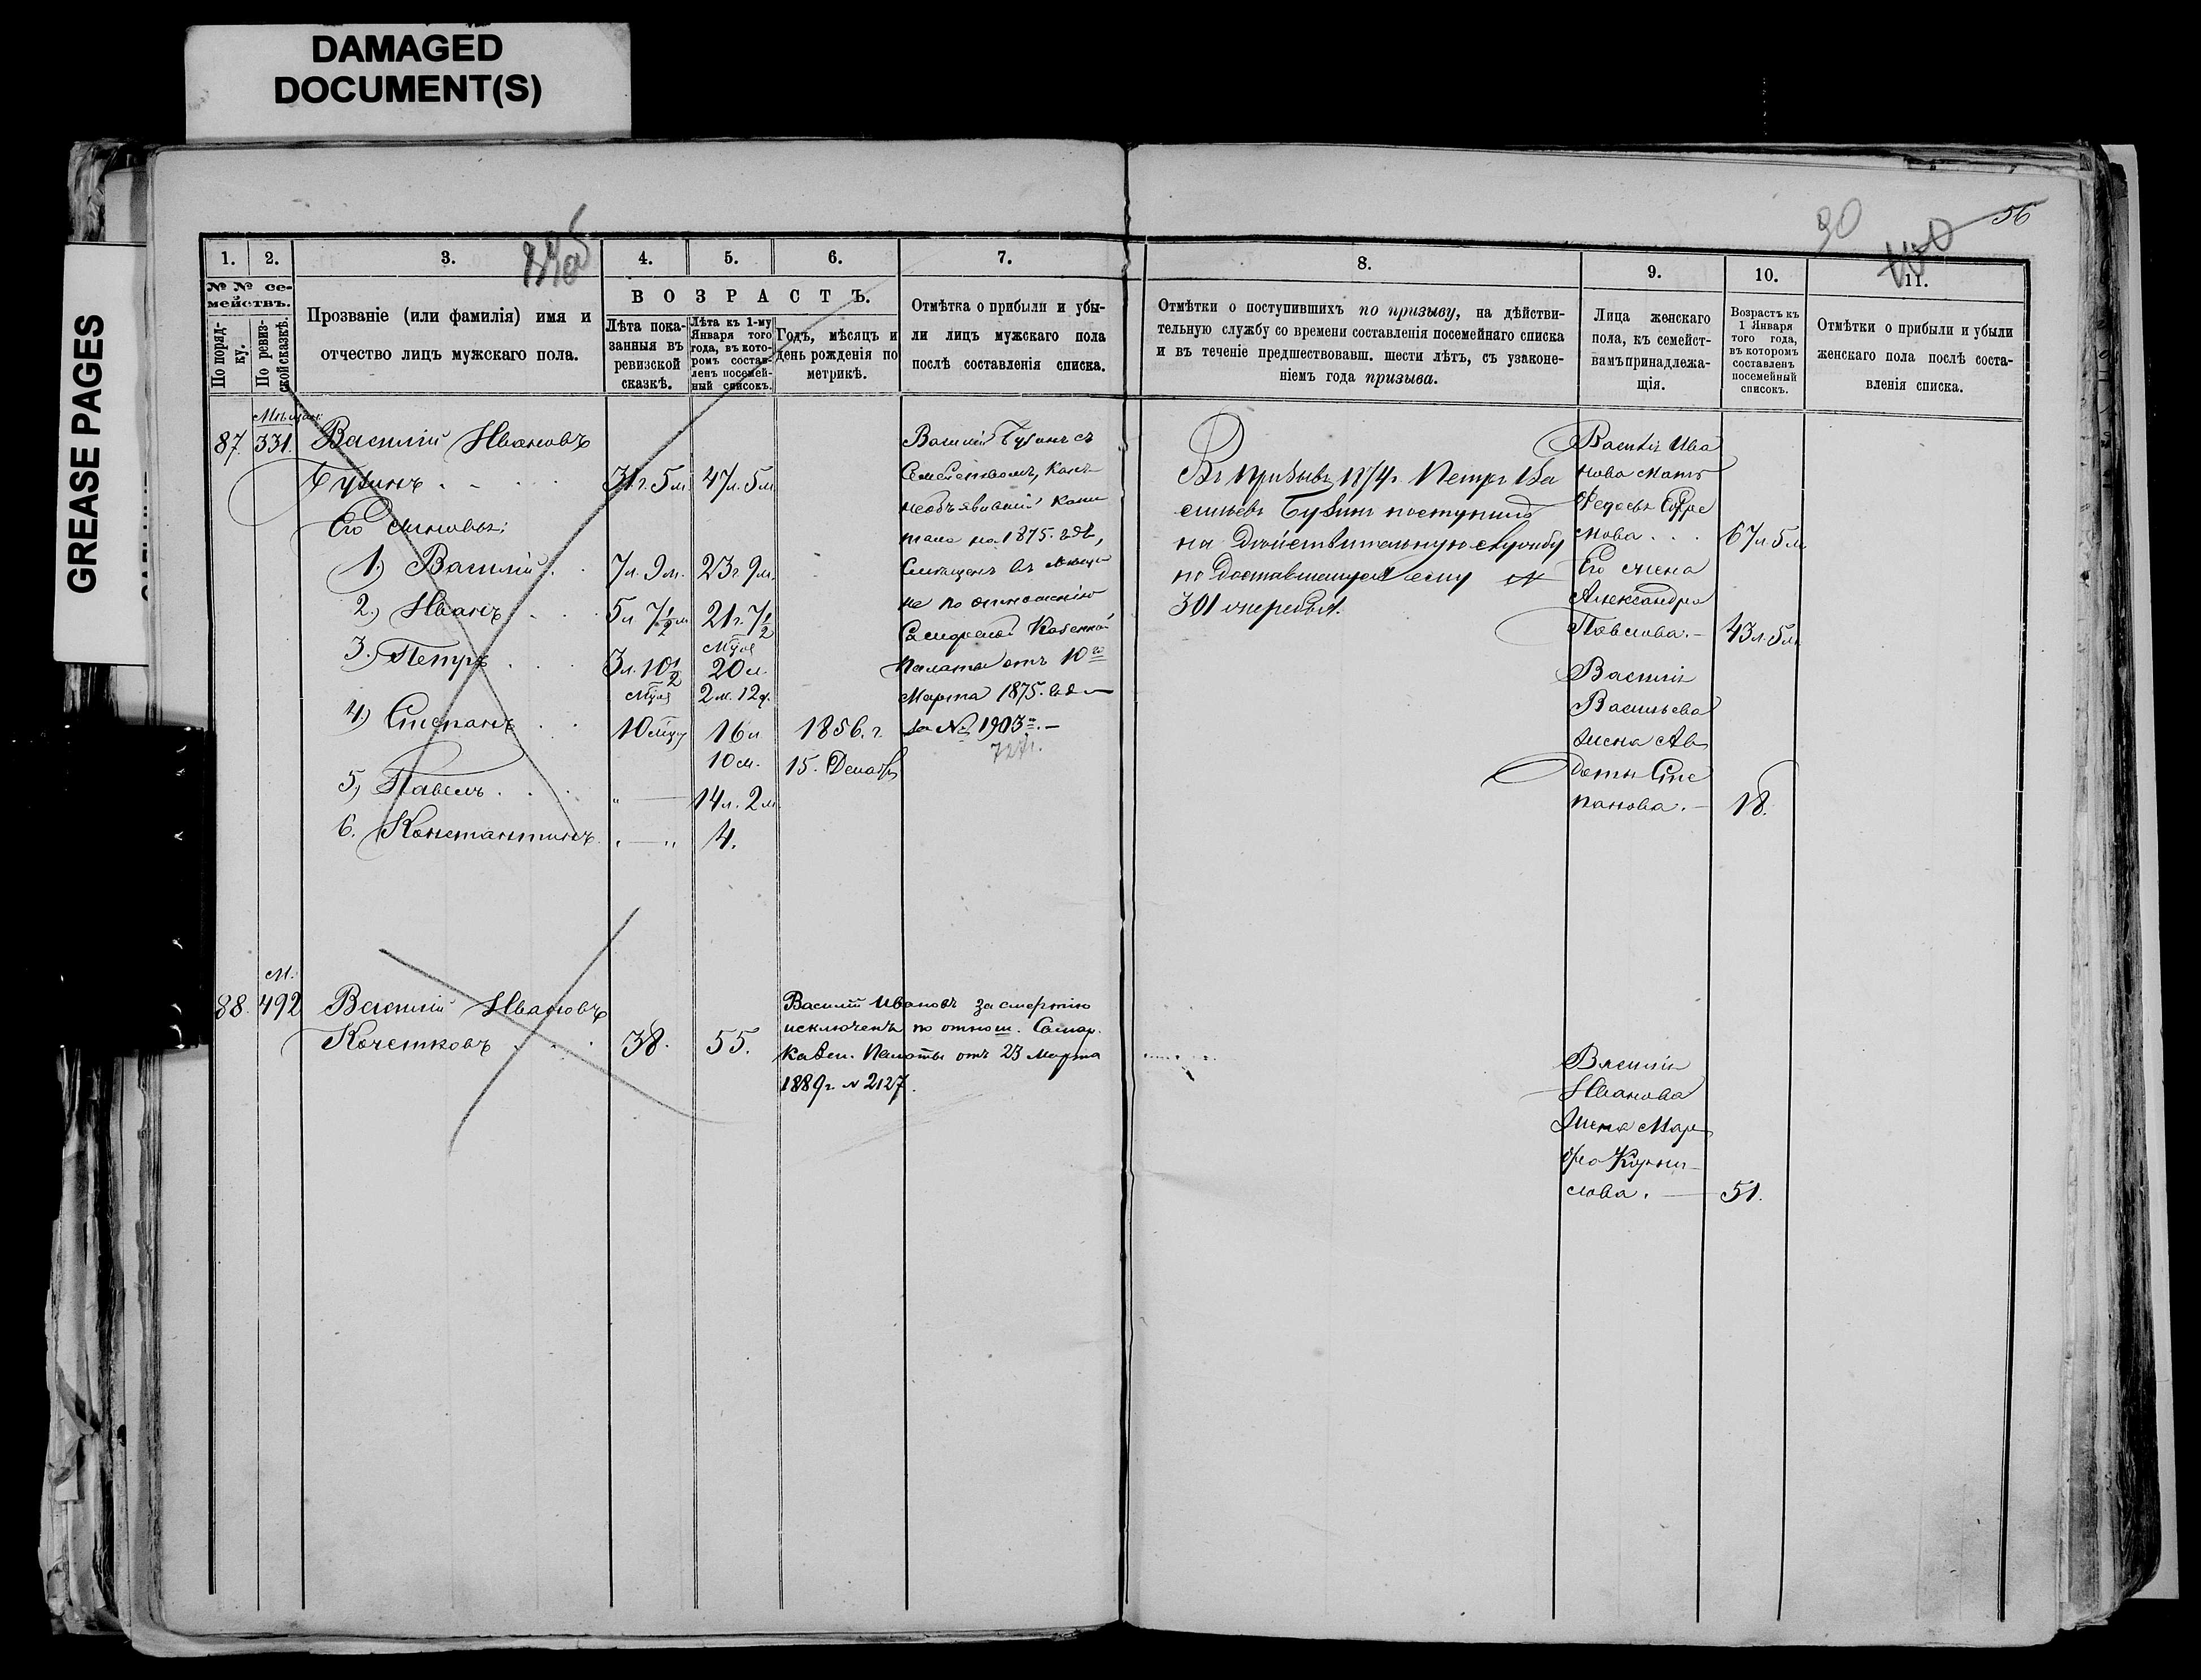 DAMAGED
DOCUMENT(S)
GREASE PAGES
90
56
1.
2.
3.
4.
5.
6.
7.
8.
9.
10.
11.
№ № се-
мействъ.
По поряд-
ку.
По ревиз-
ской сказкѣ.
Прозваніе (или фамилія) имя и
отчество лицъ мужскаго пола.
ВОЗРАСТЪ.
Лѣта пока-
занныя въ
ревизской
сказкѣ.
Лѣта къ 1-му
Января того
года, въ кото-
ромъ состав-
ленъ посемей-
ный списокъ.
Годъ, мѣсяцъ и
день рожденія по
метрикѣ.
Отмѣтка о прибыли и убы-
ли лицъ мужскаго пола
послѣ составленія списка.
Отмѣтки о поступившихъ по призыву, на дѣйстви-
тельную службу со времени составленія посемейнаго списка
и въ теченіе предшествовавш. шести лѣтъ, съ узаконе-
ніемъ года призыва.
Лица женскаго
пола, къ семейст-
вамъ принадлежа-
щія.
Возрастъ къ
1 Января
того года,
въ которомъ
составленъ
посемейный
списокъ.
Отмѣтки о прибыли и убыли
женскаго пола послѣ соста-
вленія списка.
87. 331. Василій Ивановъ
31 г. 5 м. 47 л. 5 м.
Его сыновья:
1) Василій 7 л. 9 м. 23 г. 9 м.
2.) Иванъ 5 л. 7 1/2 м. 21 г. 7 1/2
3.) Петръ 3 л. 10 1/2 20 л.
2 м. 12 д.
4.) Степанъ 16 л. 1856. г.
10 м. 15. Декабр
5) Павелъ 14 л. 2 м.
6. Константинъ 4.
Василій с
Семействомъ, какъ
необъявившій капи
тала на 1875. годъ,
не по отношенію
Самарской Казенной
Палаты отъ 10го
Марта 1875. года
за № 1903м.
Въ призывъ 1874 г. Петръ Ва
сильевъ поступилъ
на Дѣйствительную службу
по доставшемуся ему №
301 жеребья.
Василія Ива
нова мать
Федосья Ефре
мова 67 л. 5 м.
Его жена
Александра
Павлова. 43 л. 5 м.
Василія
Васильева
жена Ав
дотья Сте
панова. 18.
М.
88. 492 Василій Ивановъ
Кочетковъ 38. 55.
Василій Ивановъ за смертію
исключенъ по отнош. Самар.
казен. Палаты отъ 23 Марта
1889 г. № 2127.
Василія
Иванова
жена Мар
фа Корни-
лова. 51.